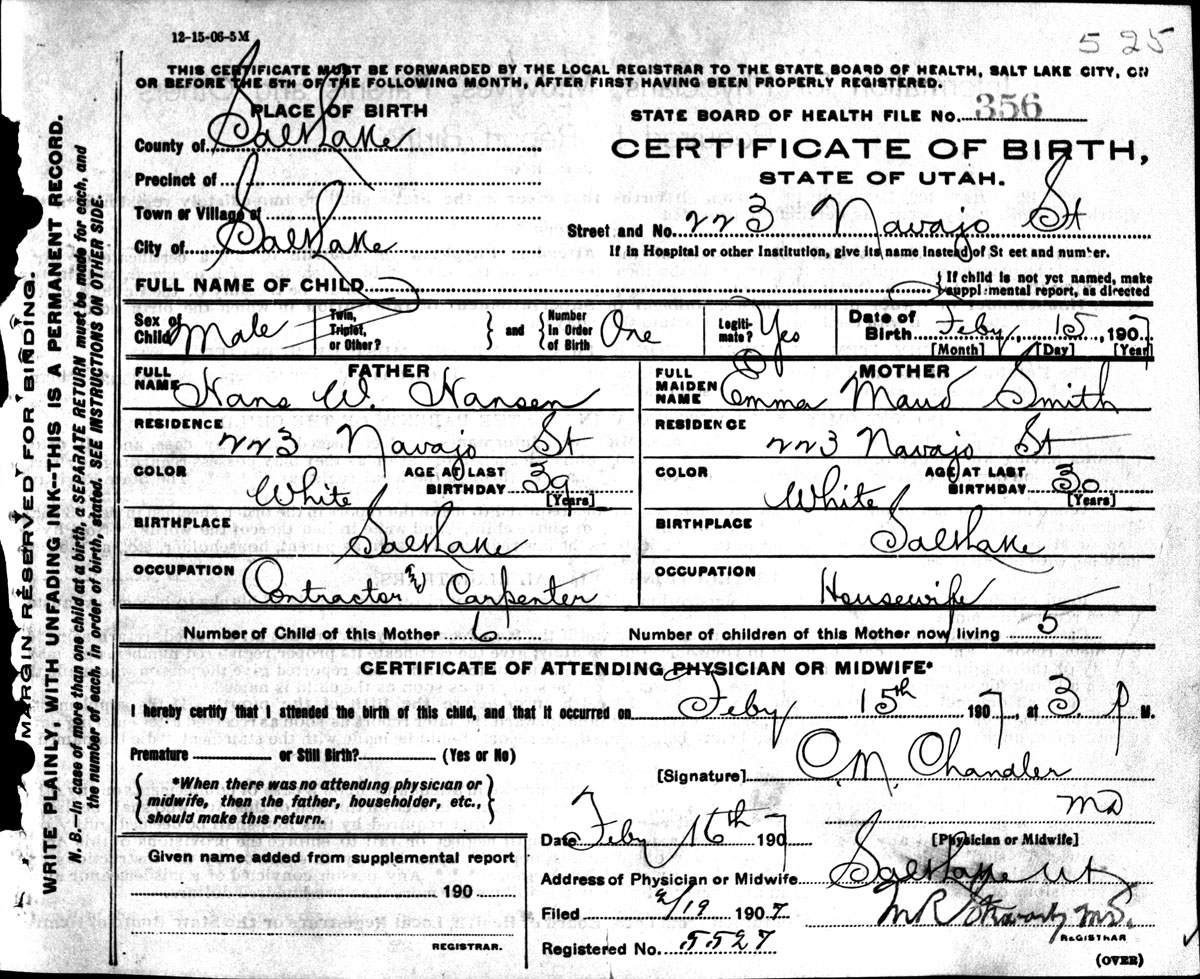 12-15-06-5M
525
THIS CERTIFICATE MUST BE FORWARDED BY THE LOCAL REGISTRAR TO THE STATE BOARD OF HEALTH, SALT LAKE CITY, ON
OR BEFORE THE 5TH OF THE FOLLOWING MONTH, AFTER FIRST HAVING BEEN PROPERLY REGISTERED.
PLACE OF BIRTH
STATE BOARD OF HEALTH FILE No. 356
County of Salt Lake
CERTIFICATE OF BIRTH,
STATE OF UTAH.
Precinct of
Town or Village of
Street and No. 223 Navajo St
City of Salt Lake
If in Hospital or other Institution, give its name instead of St eet and number.
FULL NAME OF CHILD
If child is not yet named, make
suppl mental report, as directed
Sex of Child Male
Twin, Triplet, or Other?
and Number In Order of Birth One
Legiti- mate? Yes
Date of Birth Feby 15, 1907
[Month] [Day] [Year]
FATHER
FULL NAME Hans W. Hansen
RESIDENCE
223 Navajo St
COLOR White
AGE AT LAST BIRTHDAY 39 [Years]
BIRTHPLACE
Salt Lake
OCCUPATION
Contractor & Carpenter
MOTHER
FULL MAIDEN NAME Emma Maud Smith
RESIDENCE
223 Navajo St
COLOR White
AGE AT LAST BIRTHDAY 30 [Years]
BIRTHPLACE
Salt Lake
OCCUPATION
Housewife
Number of Child of this Mother 6
Number of children of this Mother now living 5
CERTIFICATE OF ATTENDING PHYSICIAN OR MIDWIFE*
I hereby certify that I attended the birth of this child, and that it occurred on Feby 15th 1907, at 3 P M.
Premature or Still Birth? (Yes or No)
[Signature] C. M. Chandler
MD
*When there was no attending physician or
midwife, then the father, householder, etc.,
should make this return.
Date Feby 16th 1907
[Physician or Midwife]
Given name added from supplemental report
190
REGISTRAR.
Address of Physician or Midwife Salt Lake Ut
Filed 2/19 1907
M R M.D.
REGISTRAR
Registered No. 5527
(OVER)
MARGIN RESERVED FOR BINDING.
WRITE PLAINLY, WITH UNFADING INK--THIS IS A PERMANENT RECORD.
N. B.—In case of more than one child at a birth, a SEPARATE RETURN must be made for each, and
the number of each, in order of birth, stated. SEE INSTRUCTIONS ON OTHER SIDE.